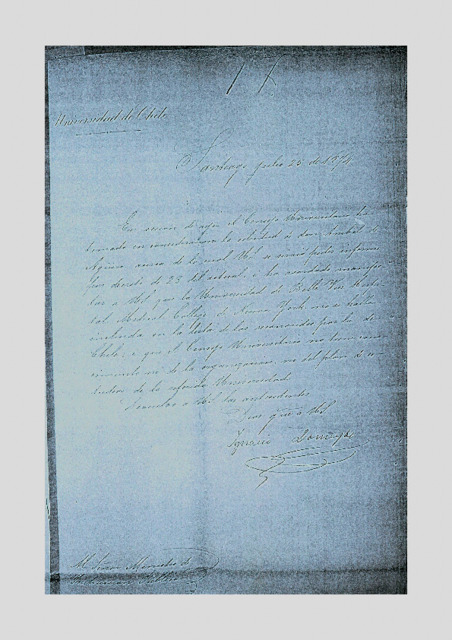 Universidad de Chile
Santiago, julio 25 de 1874
En sesion de ayer el Consejo Universitario ha
tomado en consideracion la solicitud de don
acerca de la cual US. se sirvió pedir informe
por decreto de 23 del actual, i ha acordado manifes-
tar a US. que la Universidad de Belle Vue Hospi-
tal Medical College de Nueva York no se halla
incluida en la lista de las reconocidas por la de
Chile, i que el Consejo Universitario no tiene cono-
cimiento ni de la organizacion, ni del plan de es-
tudios de la referida Universidad.
Devuelvo a US. los antecedentes.
Dios gue a US.
Ignacio Domeyko
Al Señor Ministro de